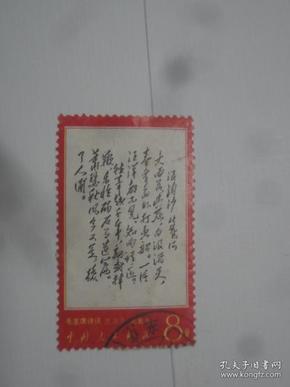 浪淘沙 北戴河
大雨落幽燕 白浪滔天
秦皇岛外打鱼船 一片
汪洋都不见 知向谁边
往事越千年 魏武挥
鞭 东临碣石有遗篇
萧瑟秋风今又是 换
了人间
毛主席诗词
中国人民
8分
孔夫子旧书网